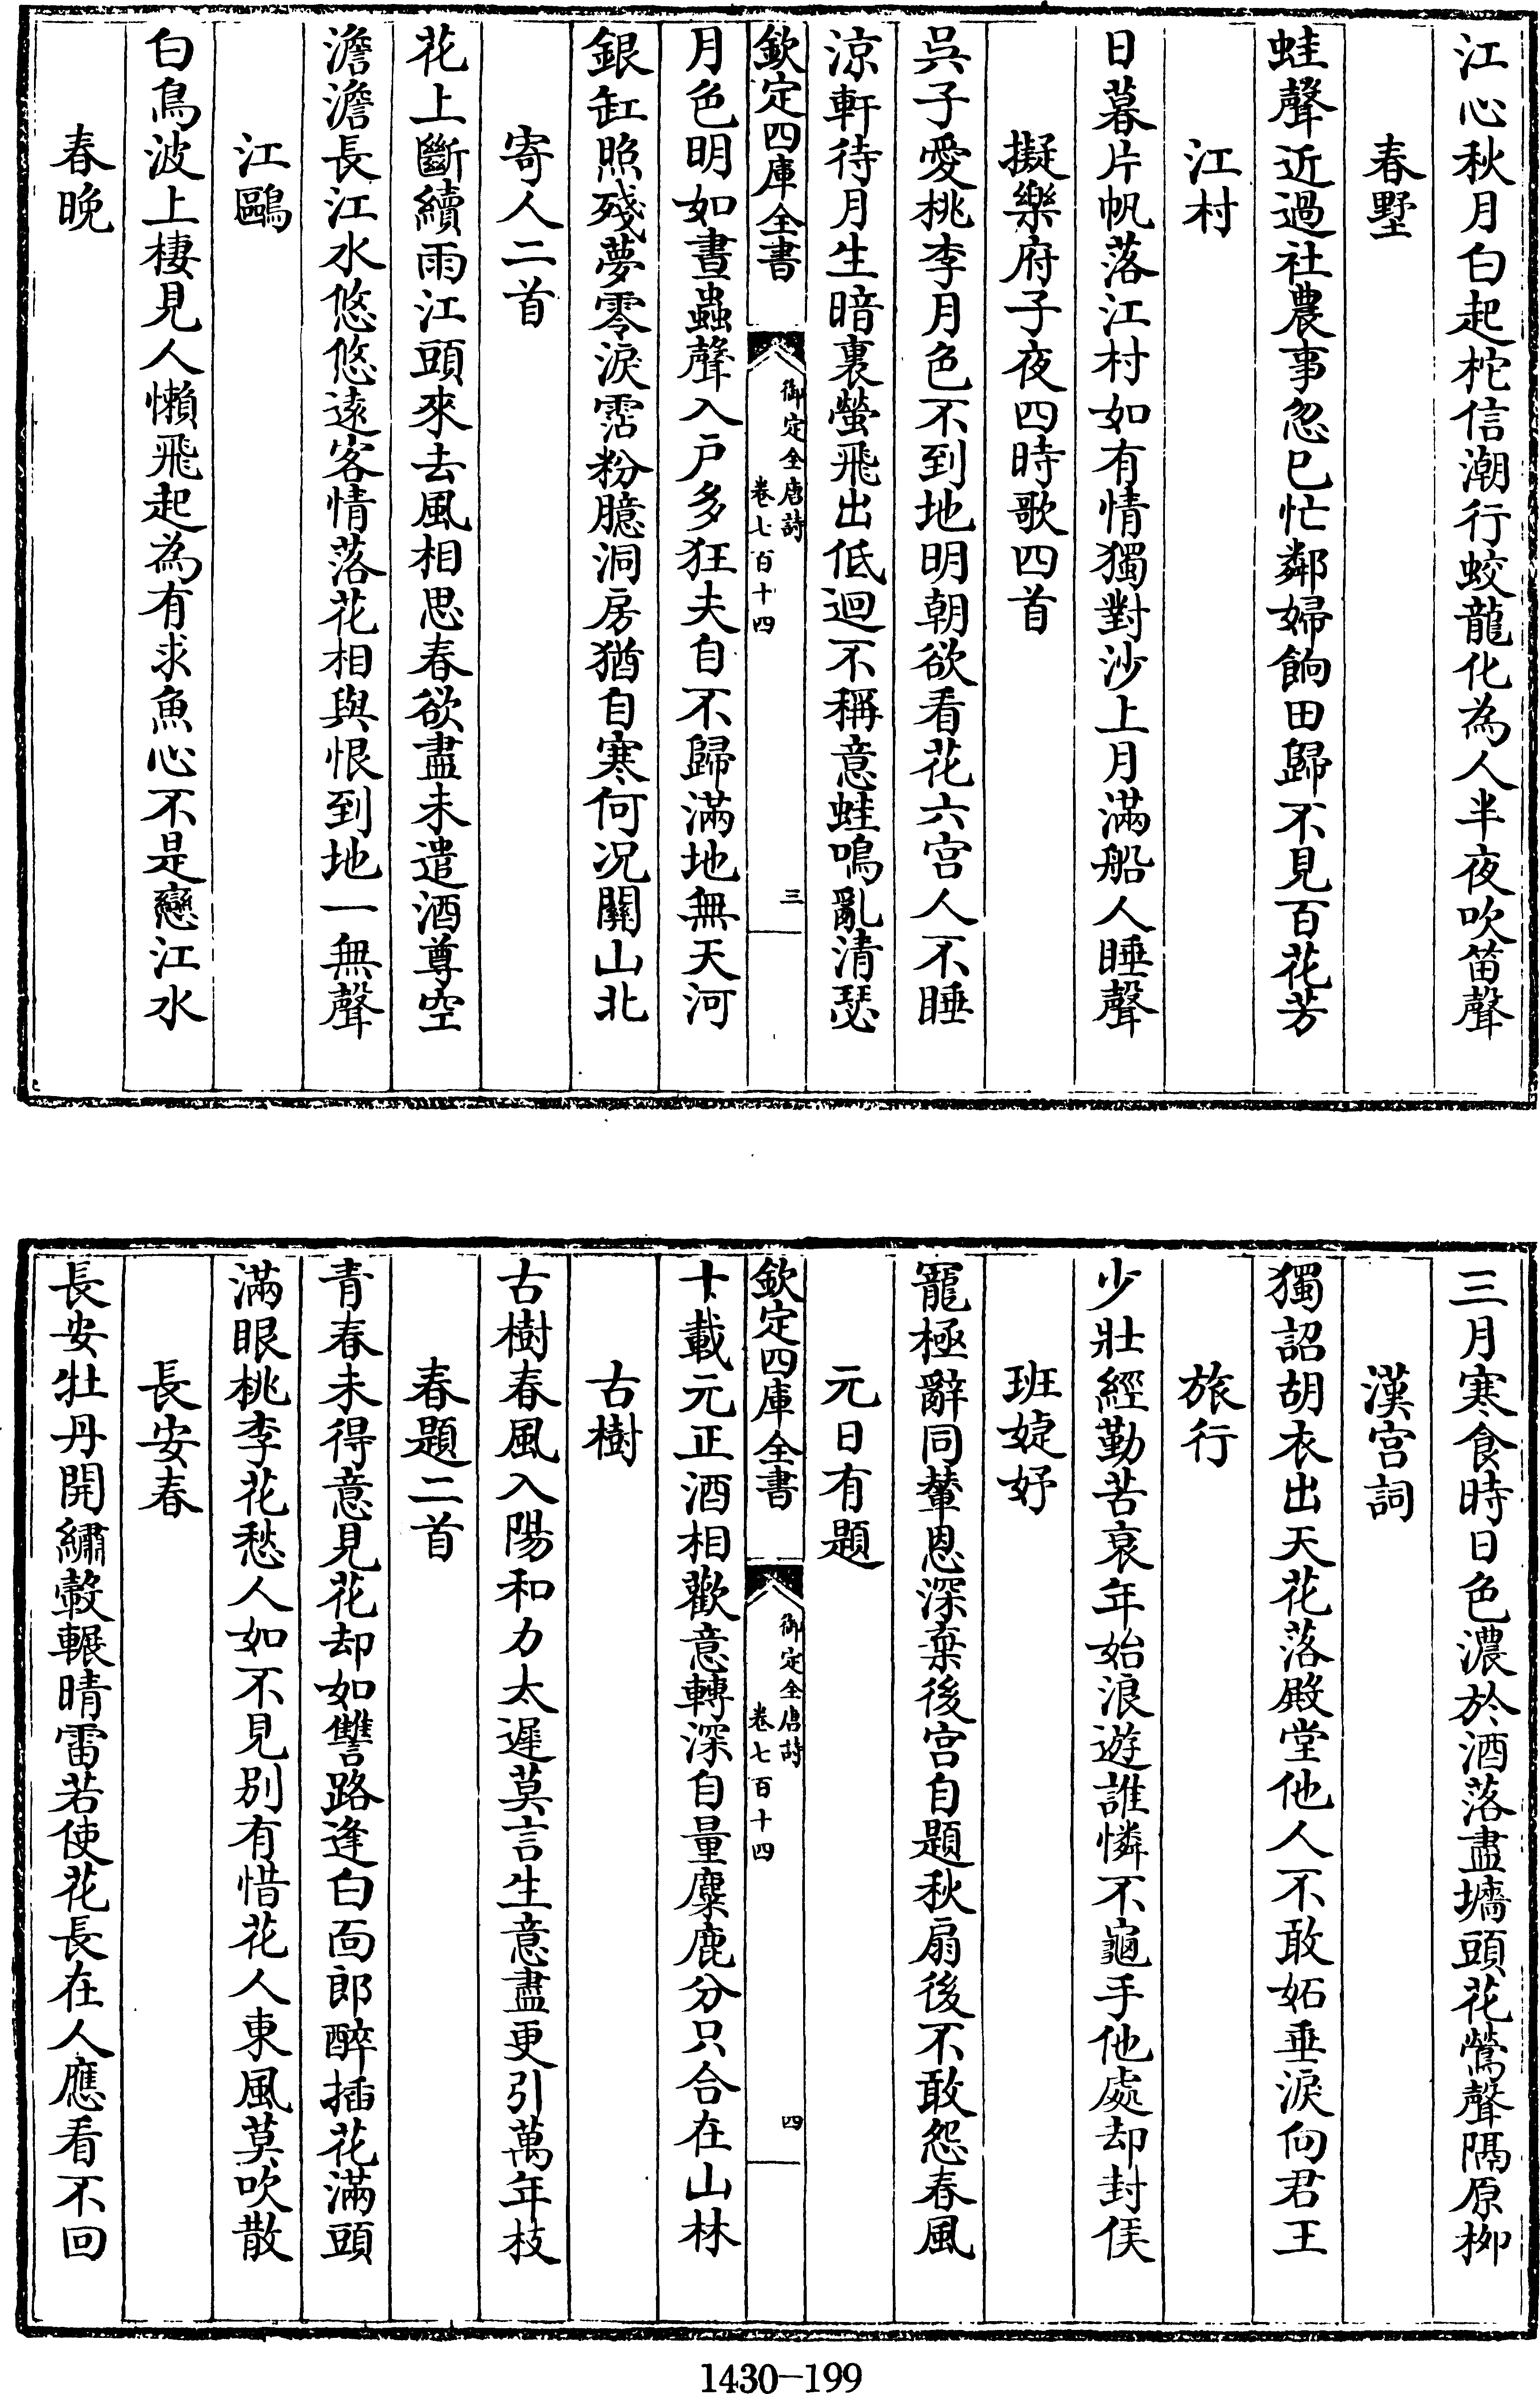 江心秋月白起柁信潮行蛟龍化為人半夜吹笛聲
春墅
蛙聲近過社農事忽已忙鄰婦餉田歸不見百花芳
江村
日暮片帆落江村如有情獨對沙上月滿船人睡聲
擬樂府子夜四時歌四首
吳子愛桃李月色不到地明朝欲看花六宮人不睡
涼軒待月生暗裏螢飛出低迴不稱意蛙鳴亂清瑟
欽定四庫全書
御定全唐詩
卷七百十四
三
月色明如晝蟲聲入戶多狂夫自不歸滿地無天河
銀缸照殘夢零淚霑粉臆洞房猶自寒何況關山北
寄人二首
花上斷續雨江頭來去風相思春欲盡未遣酒尊空
澹澹長江水悠悠遠客情落花相與恨到地一無聲
江鷗
白鳥波上棲見人懶飛起為有求魚心不是戀江水
春晚
三月寒食時日色濃於酒落盡墻頭花鶯聲隔原柳
漢宮詞
獨詔胡衣出天花落殿堂他人不敢妬垂淚向君王
旅行
少壯經勤苦衰年始浪遊誰憐不龜手他處却封侯
班婕妤
寵極辭同輦恩深棄後宮自題秋扇後不敢怨春風
元日有題
十載元正酒相歡意轉深自量麋鹿分只合在山林
欽定四庫全書
御定全唐詩
卷七百十四
四
古樹
古樹春風入陽和力太遲莫言生意盡更引萬年枝
春題二首
青春未得意見花却如讐路逢白面郎醉插花滿頭
滿眼桃李花愁人如不見別有惜花人東風莫吹散
長安春
長安牡丹開繡轂輾晴雷若使花長在人應看不回
1430-199